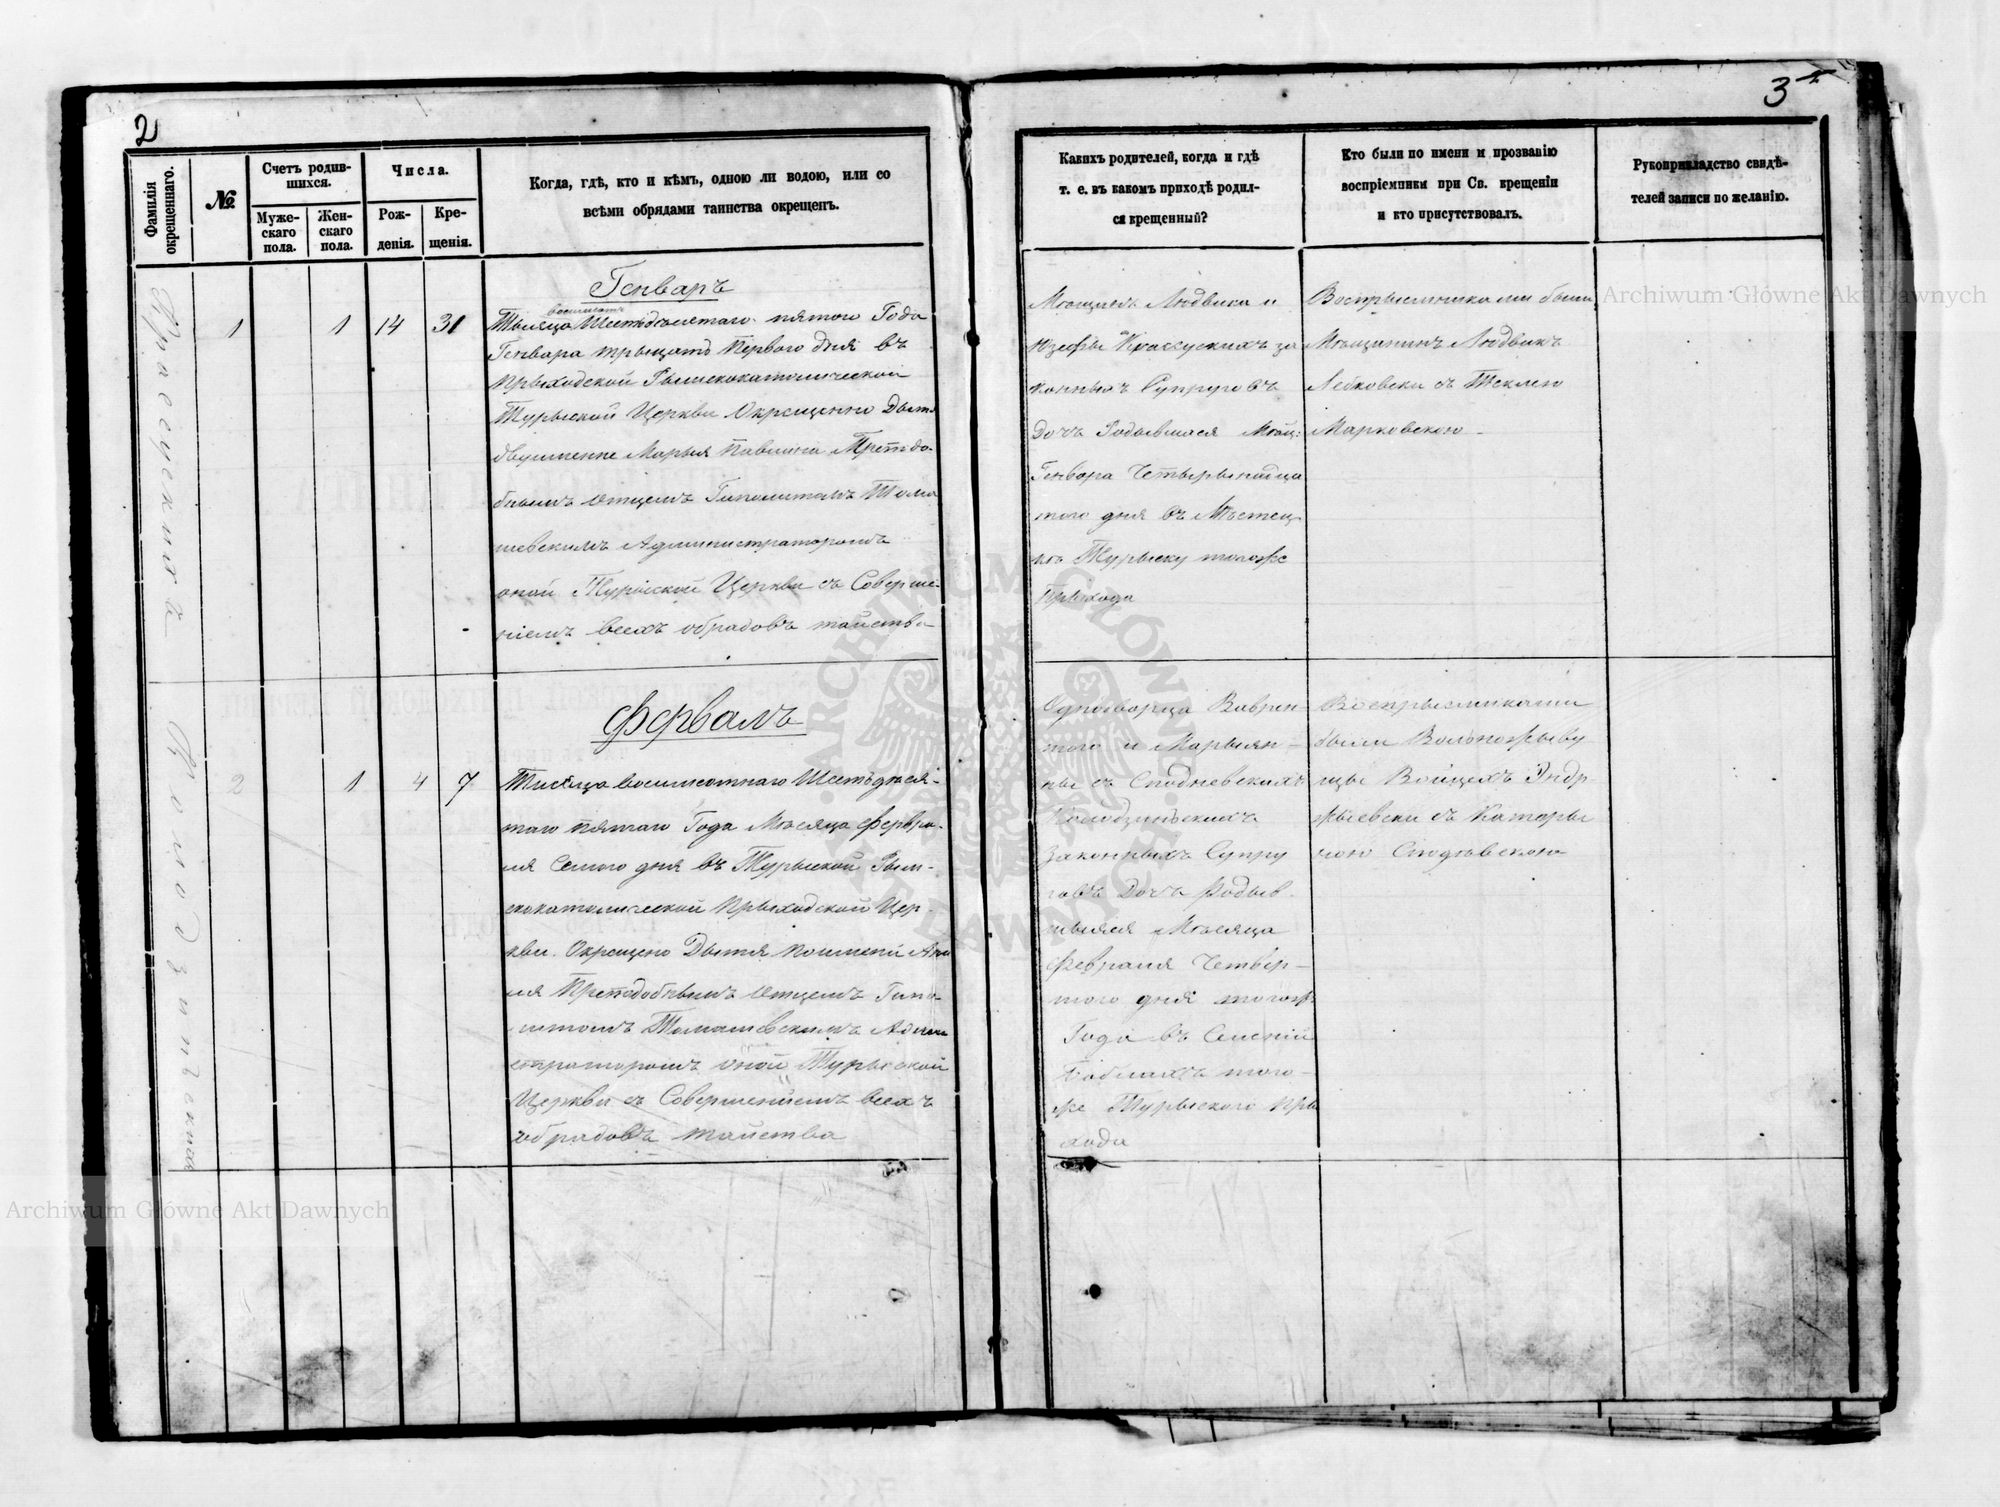 2
Фамилія окрещеннаго.
№
Счетъ родив-
шихся.
Муже-
скаго
пола.
Жен-
скаго
пола.
Числа.
Рож-
денія.
Кре-
щенія.
Когда, гдѣ, кто и кѣмъ, одною ли водою, или со
всѣми обрядами таинства окрещенъ.
1
1
14
31
Генваръ
восимсотъ
Тысяца Шестьдесятаго пятого Года
Генвара трыцать Первого дня въ
Прыходской Рымскокатолической
Турыской Церкви Окрещенно Дытя
двуименне Марыя Павлина Преподо-
бнымъ Отцемъ Гиполитомъ Тома
шевскимъ Администраторомъ
оной Турыской Церкви съ Соверше-
ніемъ всехъ обрадовъ тайства
Колодзинскихъ
2
1
4
7
Февралъ
Тисяца восимсотнаго Шестьдеся-
таго пятаго Года Мѣсяца Февра-
ля Семого дня въ Турыской Рым-
скокатолической Прыходской Цер-
кви. Окрещено Дытя поимени
Преподобнымъ Отцемъ Гипо-
литомъ Томашевскимъ Админи
страторомъ оной Турыской
Церкви съ Совершеніемъ всехъ
обрадовъ тайства
3
Какихъ родителей, когда и гдѣ
т. е. въ какомъ приходѣ родил-
ся крещенный?
Кто были по имени и прозванію
воспріемники при Св. крещеніи
и кто присутствовалъ.
Рукоприкладство свидѣ-
телей записи по желанію.
Мѣщанъ Людвика и
Юзефы за
конныхъ Супруговъ
Дочъ Родывшаяся Мѣсц:
Генвара Четырынадца
того дня въ Мѣстец
кѣ Турыску тогоже
Прыхода
Воспрыемниками были
Мѣщанинъ Людвикъ
Лебковски съ Теклею
Марковскою
Однодворца Баврен
того и Марыян-
ны съ
Колодзинскихъ
Законныхъ Супру
говъ Дочъ Родыв
шыяся Мѣсяца
Февраля Четвер-
того дня тогож
Года въ Селеніи
того-
же Турыского Пры
хода
Воспрыемниками
были Вольножыву
щы Войцехъ Эндр
жыевски съ Катары
ною
Archiwum Główne Akt Dawnych
Archiwum Główne Akt Dawnych
ARCHIWUM GŁÓWNE AKT DAWNYCH